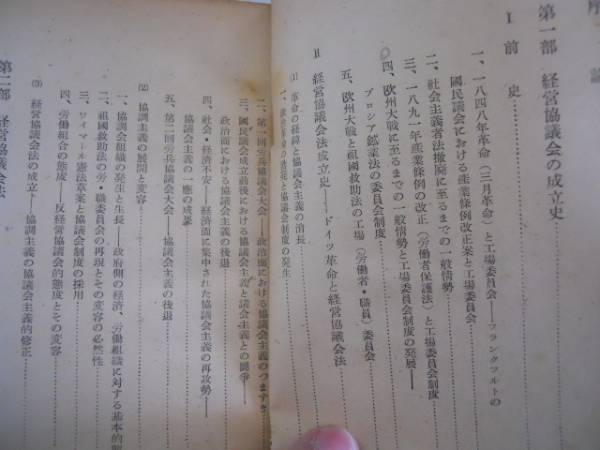 第一部 経営協議会の成立史
Ⅰ 前史
一、一八四八年革命(三月革命)と工場委員会――フランクフルトの
国民議会における産業条例改正案と工場委員会
二、社会主義者法撤廃に至るまでの一般情勢
三、一八九一年産業条例の改正(労働者保護法)と工場委員会制度
四、欧州大戦に至るまでの一般情勢と工場委員会制度の発展――
プロシア鉱業法の委員会制度
五、欧州大戦と祖国救助法の工場(労働者・職員)委員会
Ⅱ 経営協議会法成立史――ドイツ革命と経営協議会法
(1) 革命の経緯と協議会主義の消長
二、第一回労兵協議会大会――政治面における協議会主義のつまずき
三、国民議会成立前後における協議会主義と議会主義との闘争――
政治面における協議会主義の後退
四、社会・経済不安――経済面に集中された協議会主義の再攻勢――
協議会主義の一應の成果
五、第二回労兵協議会大会――協議会主義の後退
(2) 協調主義の展開と変容
一、協調会組織の発生と生長――政府側の経済、労働組織に対する基本的
二、祖国救助法の労・職委員会の再現とその変容の必然性
三、ワイマール憲法草案と協議会制度の採用
四、労働組合の態度――反経営協議会的態度とその変容
(3) 経営協議会法の成立――協調主義の協議会主義的修正
第二部 経営協議会法